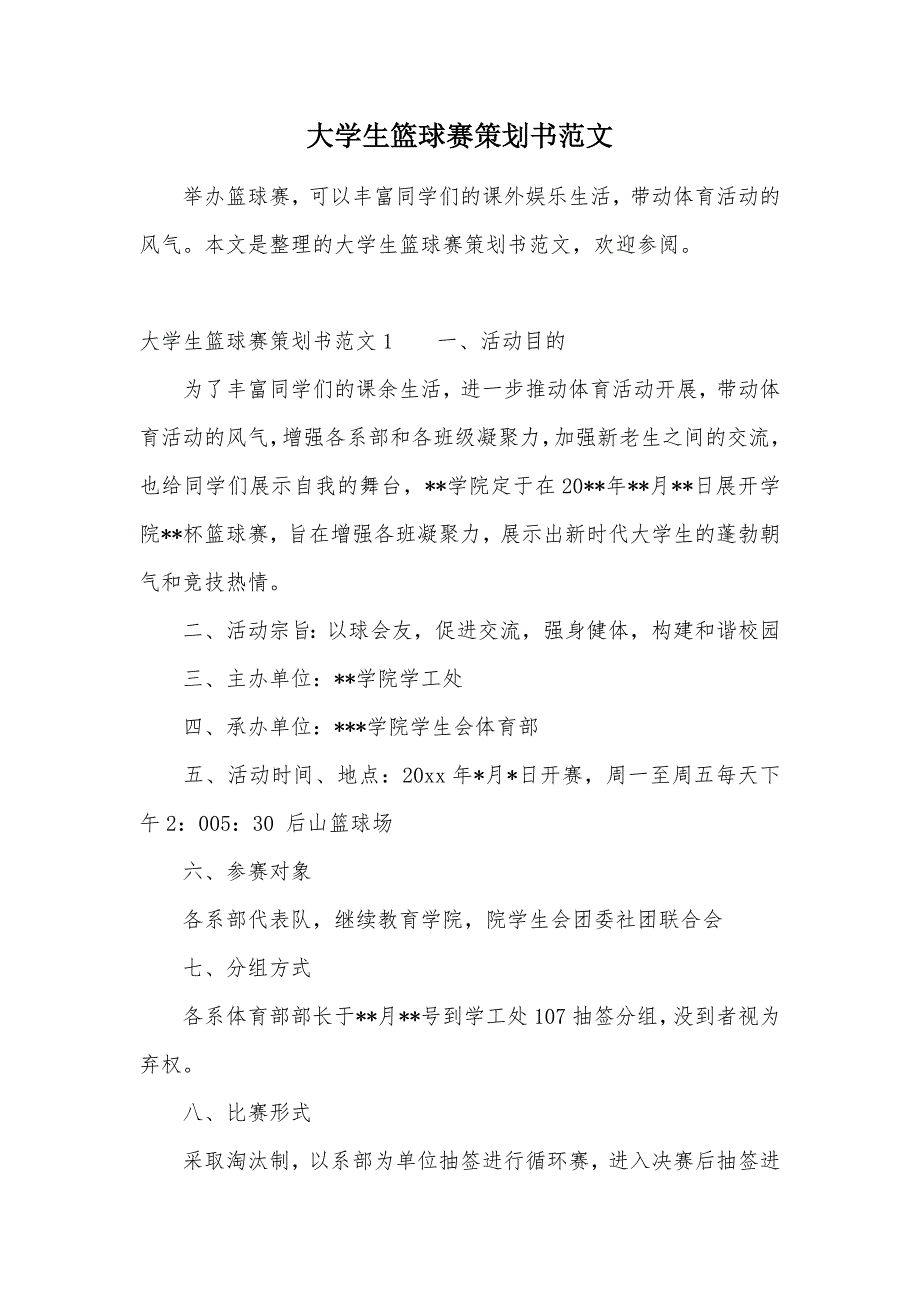 大学生篮球赛策划书范文
举办篮球赛，可以丰富同学们的课外娱乐生活，带动体育活动的
风气。本文是整理的大学生篮球赛策划书范文，欢迎参阅。
大学生篮球赛策划书范文1　　一、活动目的
为了丰富同学们的课余生活，进一步推动体育活动开展，带动体
育活动的风气，增强各系部和各班级凝聚力，加强新老生之间的交流，
也给同学们展示自我的舞台，**学院定于在20**年**月**日展开学
院**杯篮球赛，旨在增强各班凝聚力，展示出新时代大学生的蓬勃朝
气和竞技热情。
二、活动宗旨：以球会友，促进交流，强身健体，构建和谐校园
三、主办单位：**学院学工处
四、承办单位：***学院学生会体育部
五、活动时间、地点：20xx年*月*日开赛，周一至周五每天下
午2：005：30 后山篮球场
六、参赛对象
各系部代表队，继续教育学院，院学生会团委社团联合会
七、分组方式
各系体育部部长于**月**号到学工处107抽签分组，没到者视为
弃权。
八、比赛形式
采取淘汰制，以系部为单位抽签进行循环赛，进入决赛后抽签进